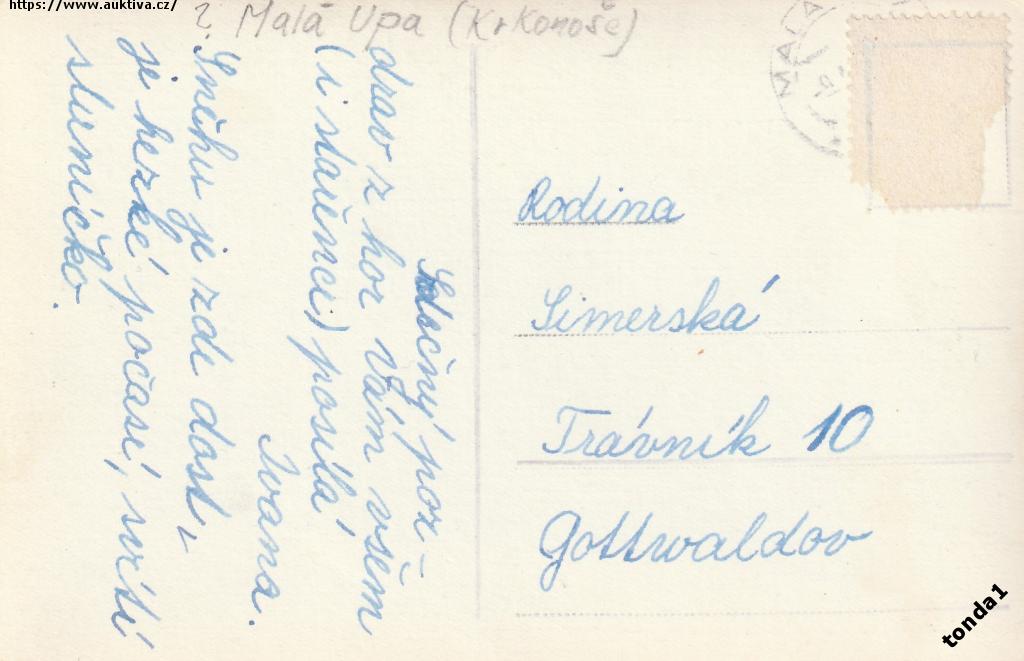 https://www.auktiva.cz/
? Malá Upa (Krkonoše)
Srdečný poz-
drav z hor Vám všem
(i stařence) posílá
Ivana.
Sněhu je zde dost,
je hezké počasí, svítí
sluníčko.
MALÁ
Rodina
Simerská
Trávník 10
Gottwaldov
tonda1